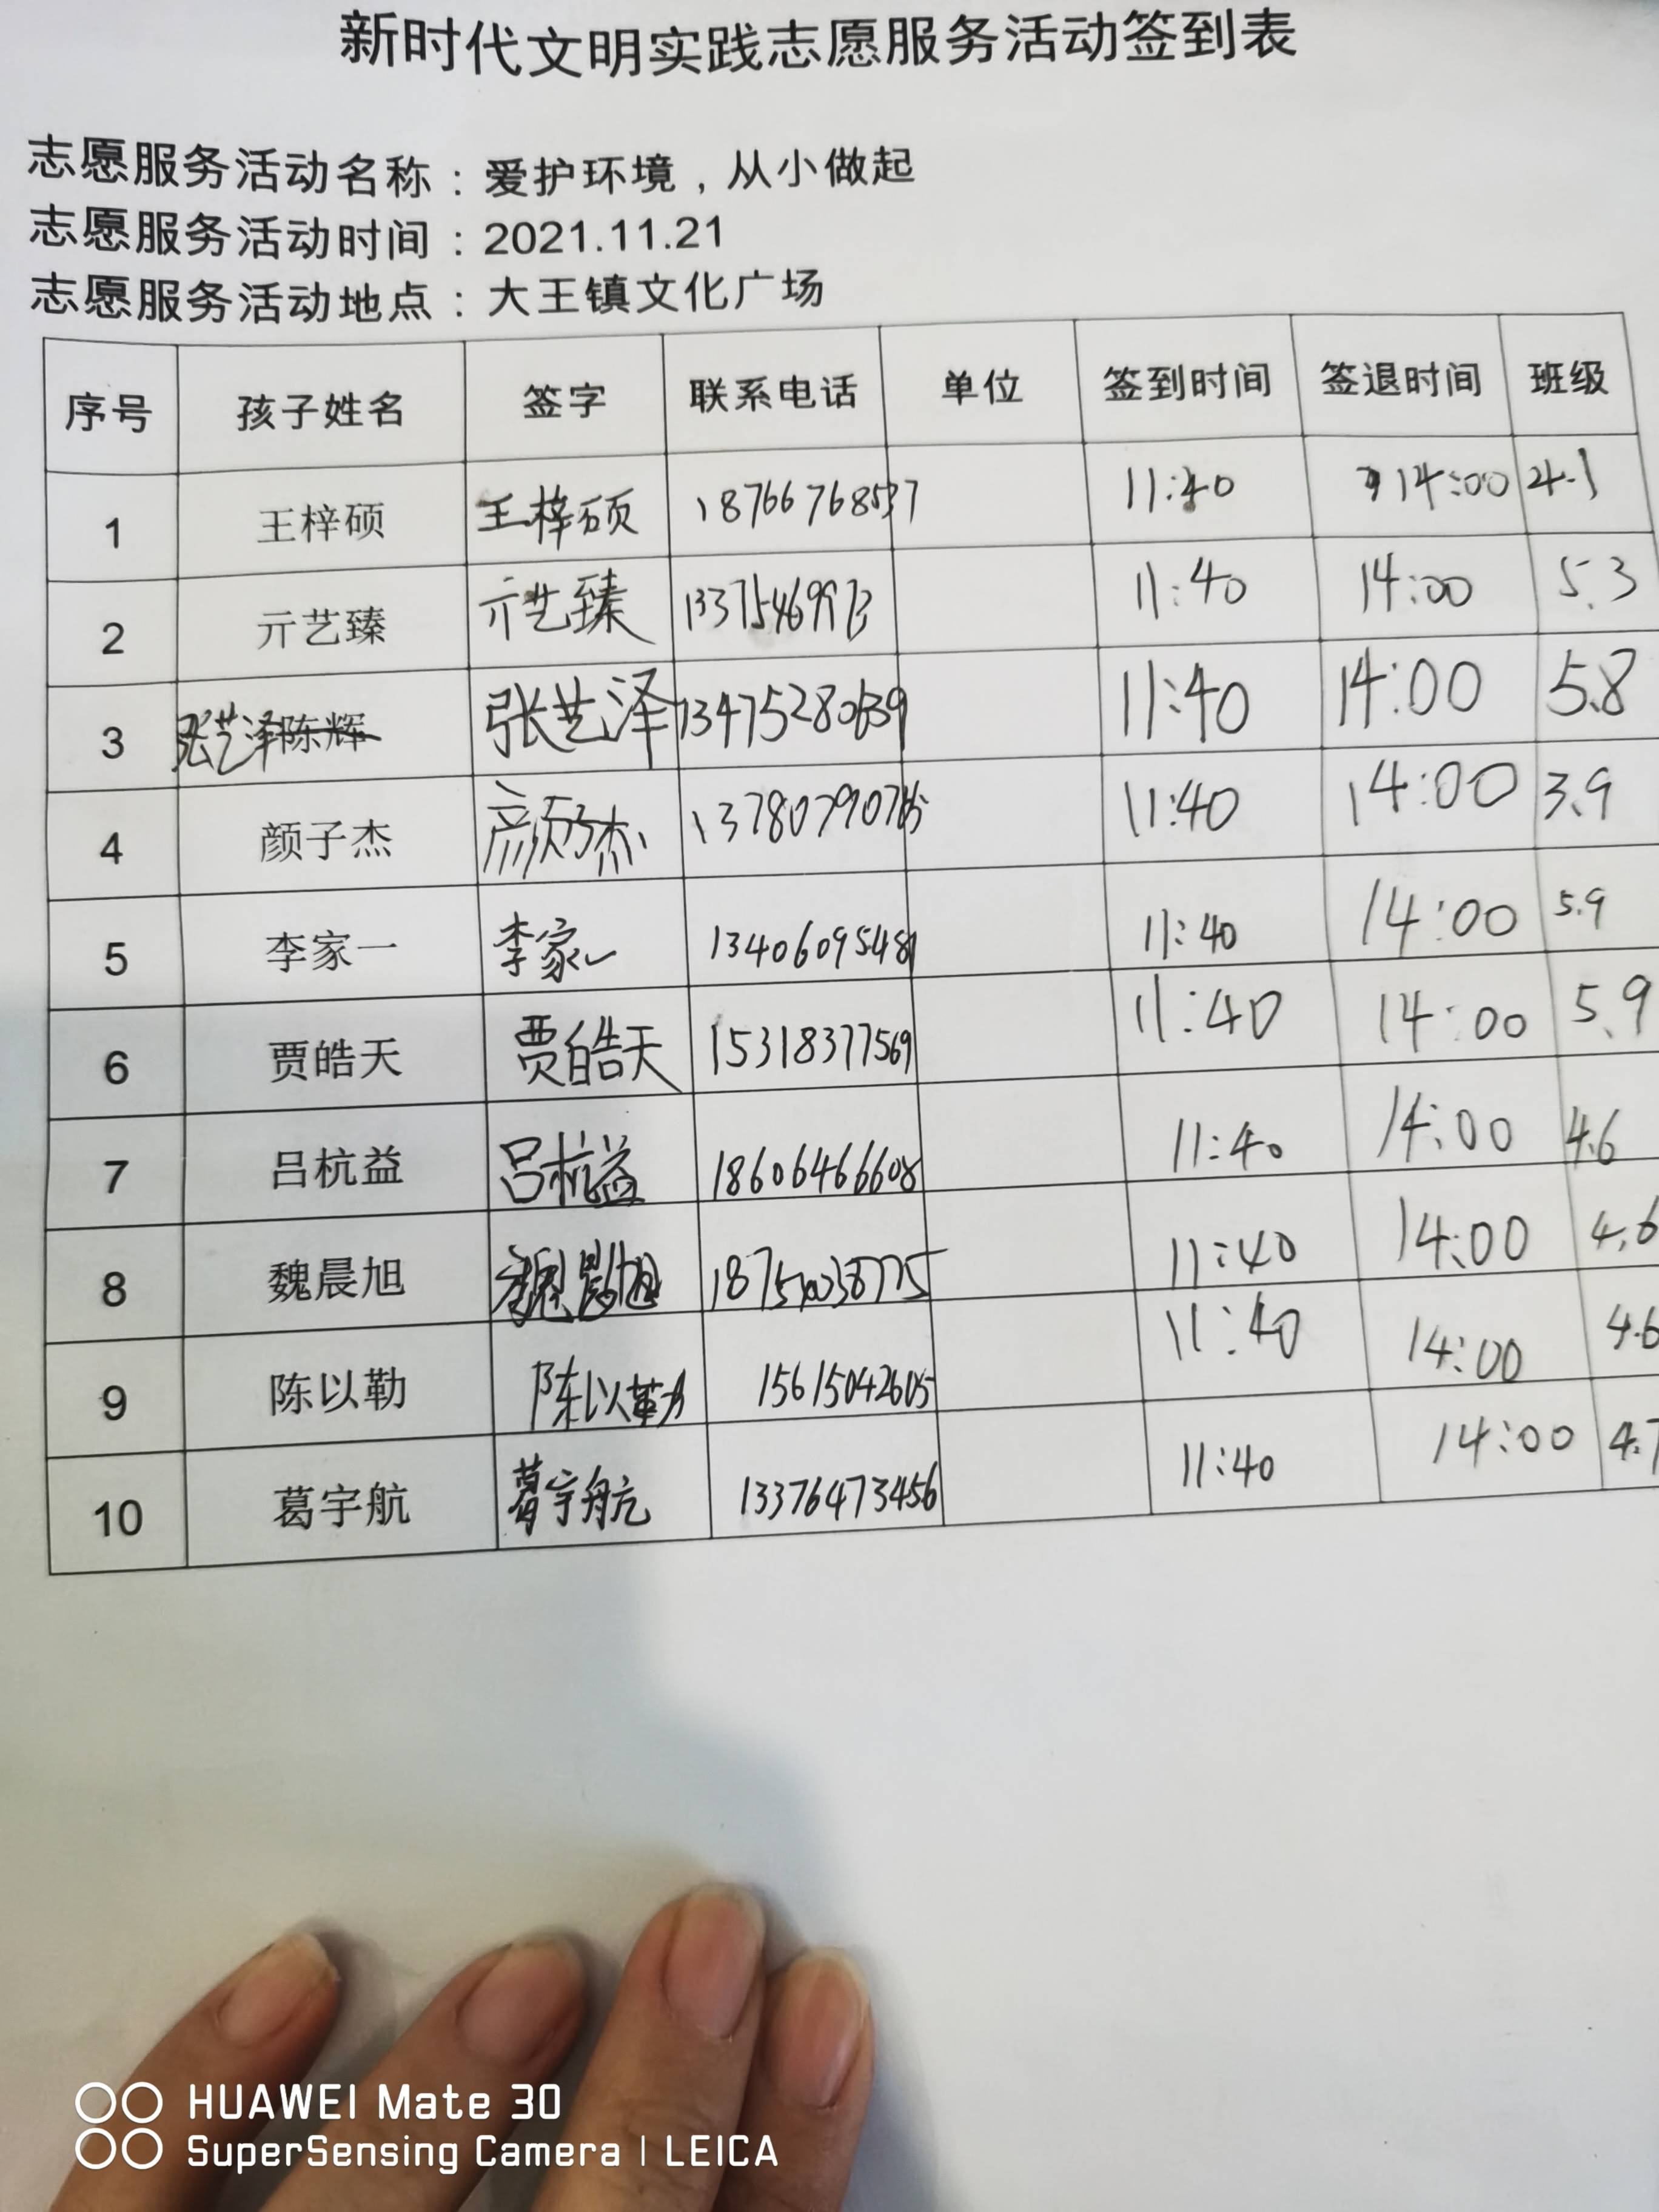 新时代文明实践志愿服务活动签到表
志愿服务活动名称：爱护环境，从小做起
志愿服务活动时间：2021.11.21
志愿服务活动地点：大王镇文化广场
序号 孩子姓名 签字 联系电话 单位 签到时间 签退时间 班级
1 王梓硕 王梓硕 18766768537 11:40 14:00 4.1
2 亓艺臻 亓艺臻 11:40 14:00 5.3
3 张艺泽 陈辉 张艺泽 11:40 14:00 5.8
4 颜子杰 颜子杰 11:40 14:00 3.9
5 李家一 李家一 13406095481 11:40 14:00 5.9
6 贾皓天 贾皓天 15318377569 11:40 14:00 5.9
7 吕杭益 吕杭益 18606466608 11:40 14:00 4.6
8 魏晨旭 魏晨旭 11:40 14:00 4.6
9 陈以勒 陈以勒 15615042605 11:40 14:00 4.6
10 葛宇航 葛宇航 13376473456 11:40 14:00 4.7
HUAWEI Mate 30
SuperSensing Camera | LEICA